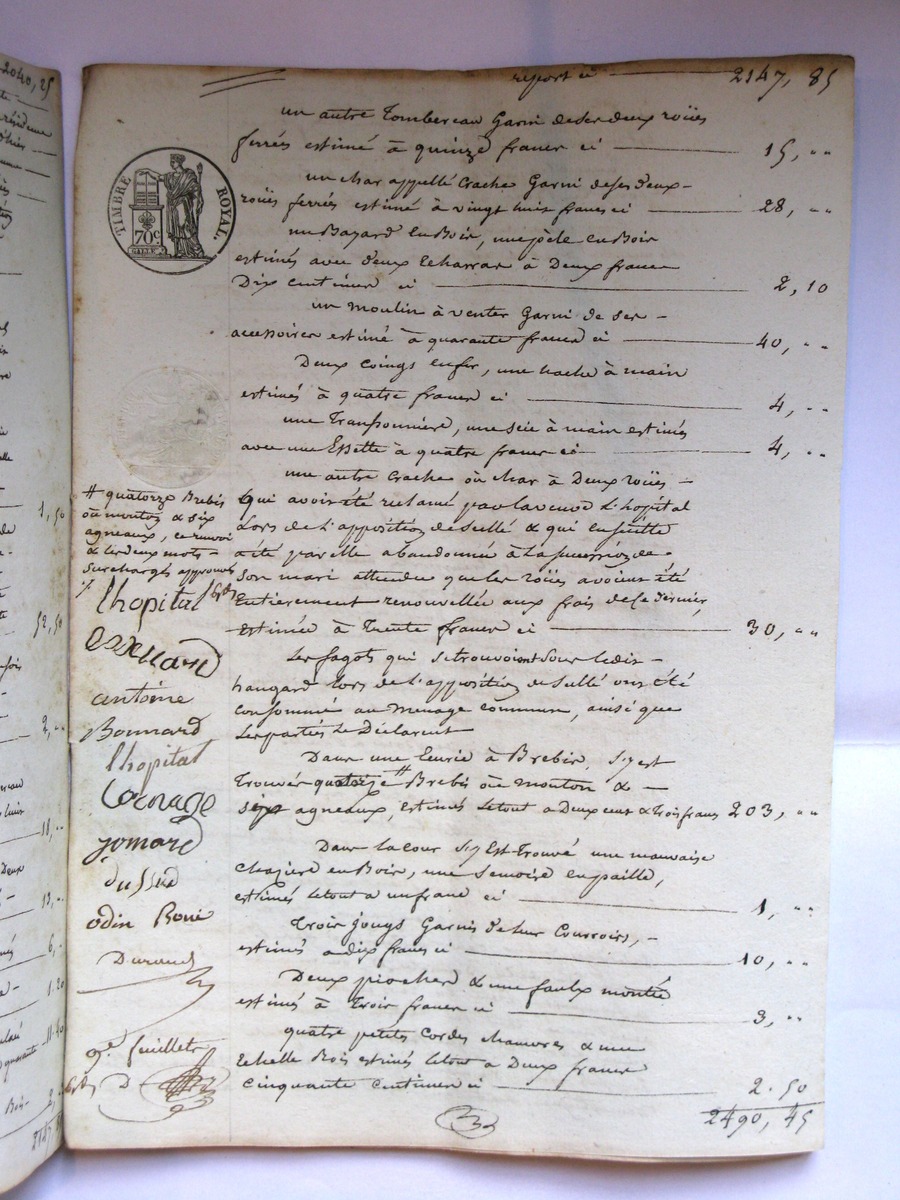 report ci 2147, 85
un autre Tombereau Garni de ses deux roües
ferrés estimé à quinze francs ci 15, "
un char appellé Crache Garni de ses deux
roües ferrées estimé à vingt huit francs ci 28, "
un Bayard en Bois, une pèle en Bois
estimés avec deux Echarras à Deux francs
Dix centimes ci 2, 10
un moulin à venter Garni de ses
accessoires estimé à quarante francs ci 40, "
Deux coings en fer, une hache à main
estimés à quatre francs ci 4, "
une Transonnière, une scie à main estimés
avec une Essette à quatre francs ci 4, "
une autre Crache où char à Deux roües
qui avoit été réclamé par la veuve L'hopital
Lors de l'apposition de scellé & qui ensuitte
a été par elle abandonné à la succession de
son mari attendu que les roües avoient été
Entierement renouvellée aux frais de ce dernier,
Estimée à Trente francs ci 30, "
Les fagots qui se trouvoient sous le dit
hangard lors de l'apposition de scellé ont été
consommé au menage commun, ainsi que
Les parties le Déclarent
Dans une Ecurie à Brebis, s'y est
Trouvés quatorze # Brebis où mouton &
sept agneaux, estimés le tout a Deux cent & trois francs 203, "
Dans la cour s'y Est Trouvé une mauvaise
en Bois, une Semoire en paille,
estimés le tout a un franc ci 1, "
Trois jougs Garnis de leur Courroirs,
estimés a dix francs ci 10, "
Deux pioches & une faulx montée
estimés à Trois francs ci 3, "
quatre petites Cordes chanvres & une
Echelle Bois estimés le tout a Deux francs
Cinquante centimes ci 2. 50
2490, 45
TIMBRE ROYAL.
70c
# quatorze Brebis
où mouton & six
agneaux, ce renvoi
& les deux mots
surchargés approuvés
lhopital
Essertard
antoine
Bonnard
lhopital
jomard
dussud
odin Roué
Durand
9e feuillet
D
2040, 25
1, 50
52, 50
2, "
18, "
13, "
6, "
1. 20
11. 40
2147, 85